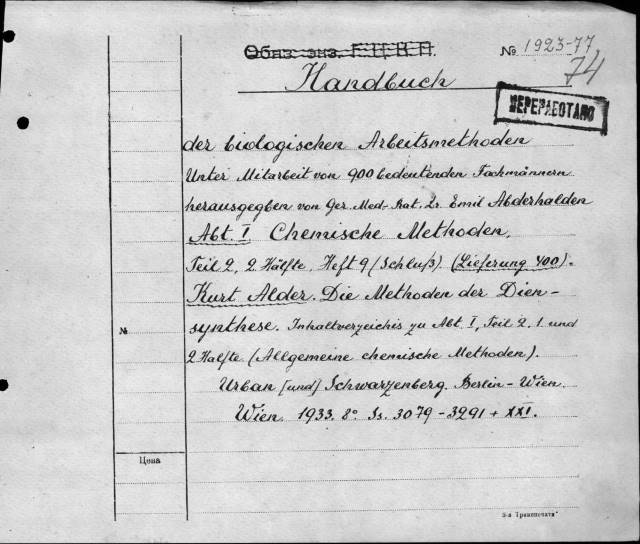 Обяз. экз. Г.Ц.К.П.
№ 1923-77
74
Handbuch
ПЕРЕРАБОТАНО
der biologischen Arbeitsmethoden
Unter Mitarbeit von 900 bedeutenden Fachmännern
herausgegben von Ger. Med. Rat. Dr. Emil Abderhalden
Abt. I Chemische Methoden.
Teil 2, 2 Hälfte, Heft 9 (Schluß) (Lieferung 400).
Kurt Alder. Die Methoden der Dien-
synthese. Inhaltverzeichis zu Abt. I, Teil 2, 1 und
№
2 Hälfte (Allgemeine chemische Methoden).
Urban [und] Schwarzenberg. Berlin - Wien.
Wien. 1933. 8° Ss. 3079-3291 + XXI.
Цена
3-я Транспечати"